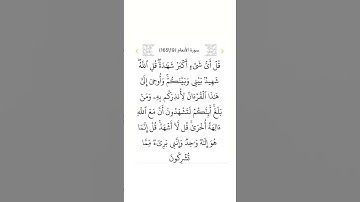 سورة الأنعام (165\19)
قُلْ أَىُّ شَىْءٍ أَكْبَرُ شَهَٰدَةً ۖ قُلِ ٱللَّهُ ۖ
شَهِيدٌۢ بَيْنِى وَبَيْنَكُمْ ۚ وَأُوحِىَ إِلَىَّ
هَٰذَا ٱلْقُرْءَانُ لِأُنذِرَكُم بِهِۦ وَمَنۢ
بَلَغَ ۚ أَئِنَّكُمْ لَتَشْهَدُونَ أَنَّ مَعَ ٱللَّهِ
ءَالِهَةً أُخْرَىٰ ۚ قُل لَّآ أَشْهَدُ ۚ قُلْ إِنَّمَا
هُوَ إِلَٰهٌ وَٰحِدٌ وَإِنَّنِى بَرِىٓءٌ مِّمَّا
تُشْرِكُونَ